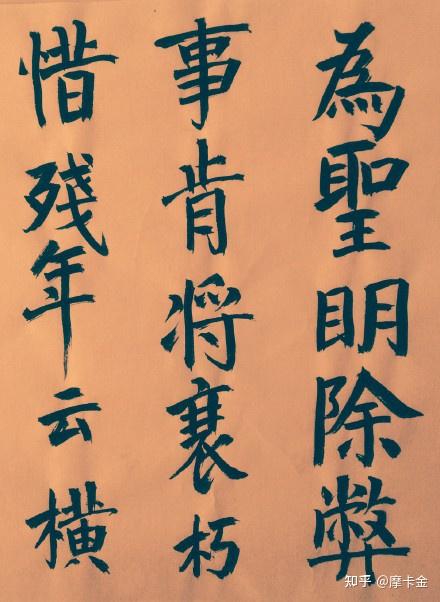 為聖眀除弊
事肯将衰朽
惜殘年云横
知乎 @摩卡金